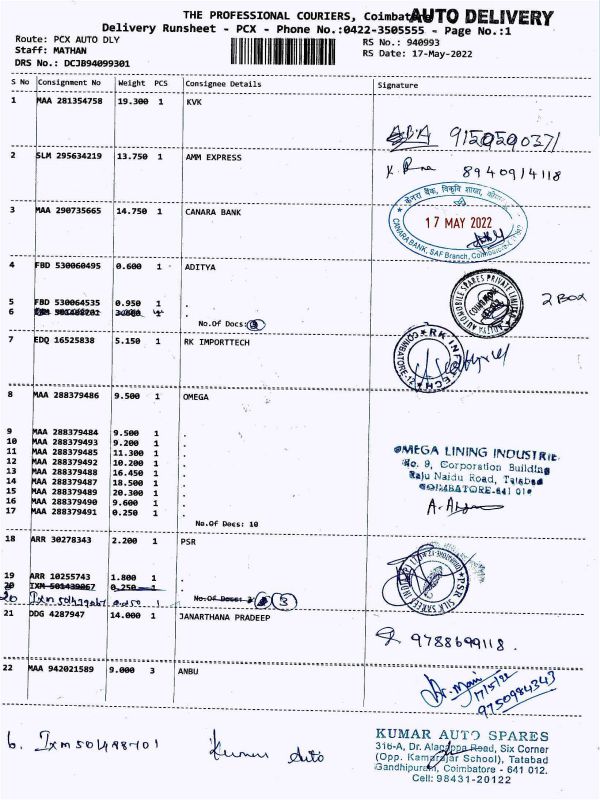 THE PROFESSIONAL COURIERS, Coimbatore
AUTO DELIVERY
Delivery Runsheet - PCX - Phone No.:0422-3505555 - Page No.:1
Route: PCX AUTO DLY
RS No.: 940993
Staff: MATHAN
RS Date: 17-May-2022
DRS No.: DCJB94099301
S No Consignment No Weight PCS Consignee Details Signature
1 MAA 281354758 19.300 1 KVK
2 SLM 295634219 13.750 1 AMM EXPRESS
8940914118
3 MAA 290735665 14.750 1 CANARA BANK
17 MAY 2022
CANARA BANK, SAF Branch, Coimbatore
4 FBD 530060495 0.600 1 ADITYA
ADITYA AUTOMOBILE SPARES PRIVATE LIMITED
5 FBD 530064535 0.950 1 .
2 Box
6
No.Of Docs:
7 EDQ 16525838 5.150 1 RK IMPORTTECH
RK INFRATECH
COIMBATORE-12
8 MAA 288379486 9.500 1 OMEGA
9 MAA 288379484 9.500 1 .
10 MAA 288379493 9.200 1 .
11 MAA 288379485 11.300 1 .
12 MAA 288379492 10.200 1 .
13 MAA 288379488 16.450 1 .
14 MAA 288379487 18.500 1 .
15 MAA 288379489 20.300 1 .
16 MAA 288379490 9.600 1 .
17 MAA 288379491 0.250 1 .
OMEGA LINING INDUSTRIE
No. 9, Corporation Building
Raju Naidu Road, Tatabad
COIMBATORE-641 01
No.Of Docs: 10
18 ARR 30278343 2.200 1 PSR
PSR SILK SAREES INDIA
19 ARR 10255743 1.800 1 .
20 IXM 501439067 0.250 1
20 Ixm 501479067
No.Of Docs: 3
21 DDG 4287947 14.000 1 JANARTHANA PRADEEP
9788699118
22 MAA 942021589 9.000 3 ANBU
17/5/22
9750984343
6. Ixm 501498701 Kumar Auto
KUMAR AUTO SPARES
316-A, Dr. Alagappa Road, Six Corner
(Opp. Kamarajar School), Tatabad
Gandhipuram, Coimbatore - 641 012.
Cell: 98431-20122